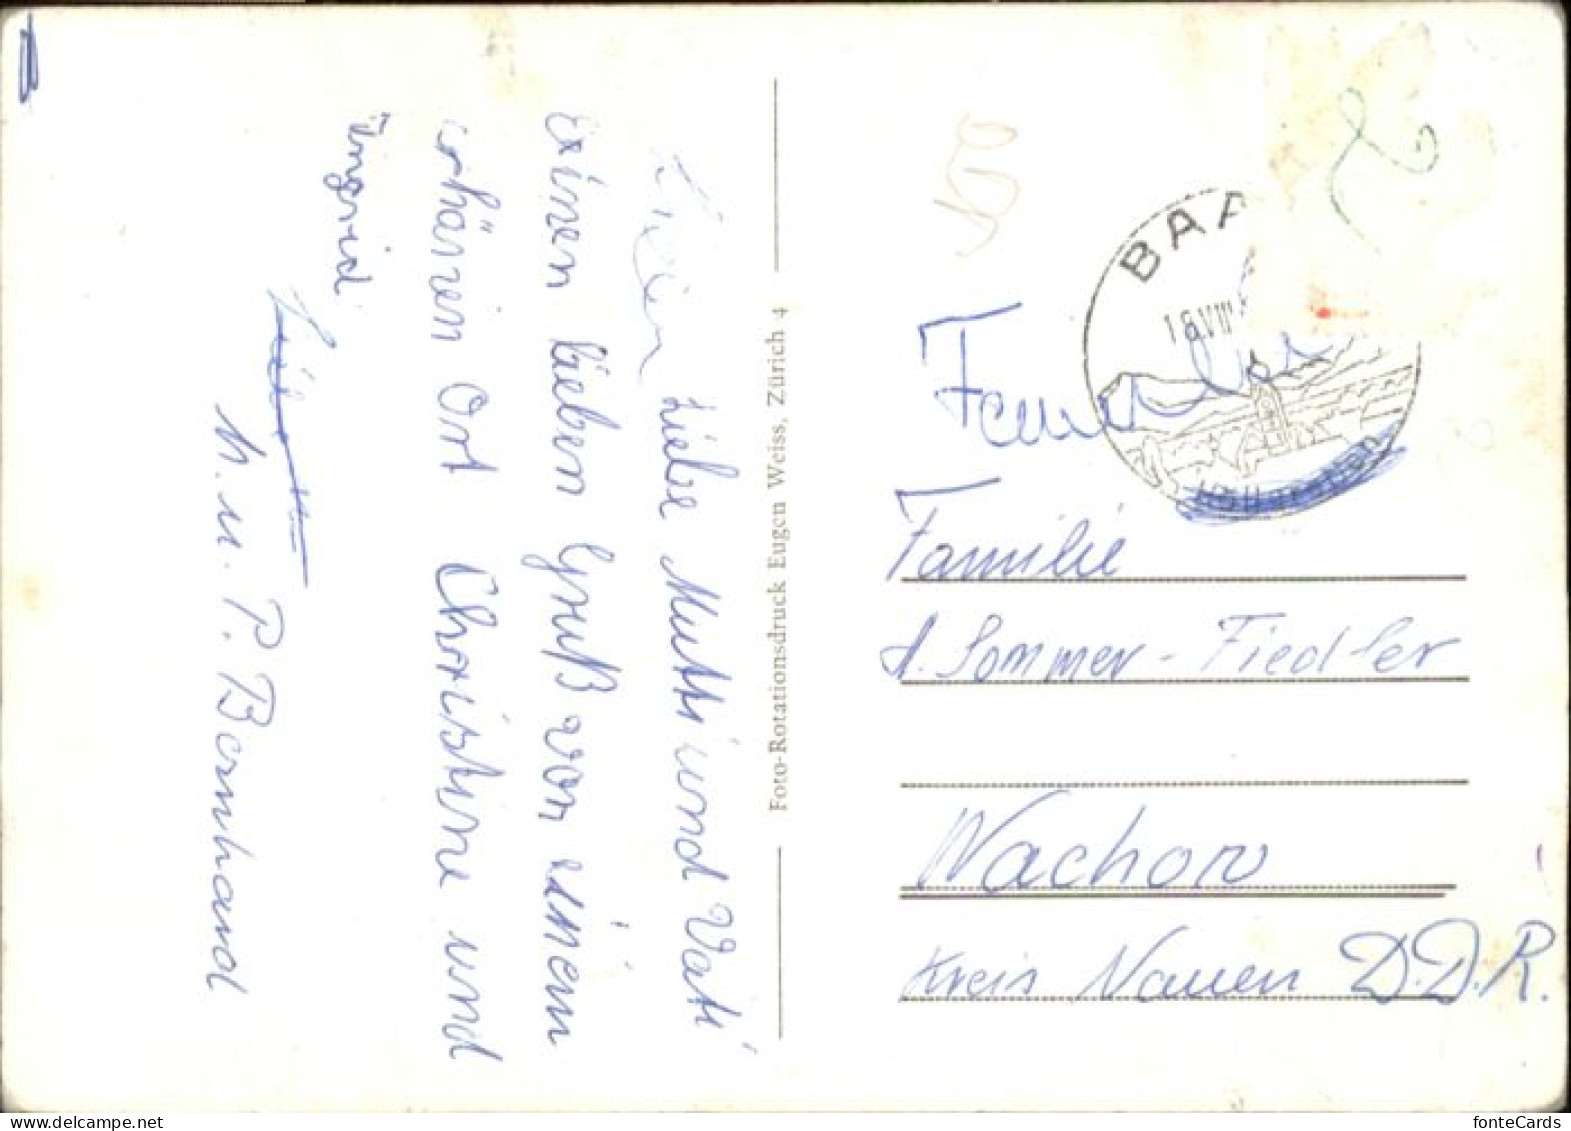 Liebe Mutti und Vati
einen lieben Gruß von einem
schönen Ort Christine und
Ingrid
M. u. P. Bernhard
Foto-Rotationsdruck Eugen Weiss, Zürich 4
BAA
18.VIII
Höllgrotten
Familie
Familie
A. Sommer-Fiedler
Wachow
Kreis Nauen D.D.R.
fonteCards
www.delcampe.net